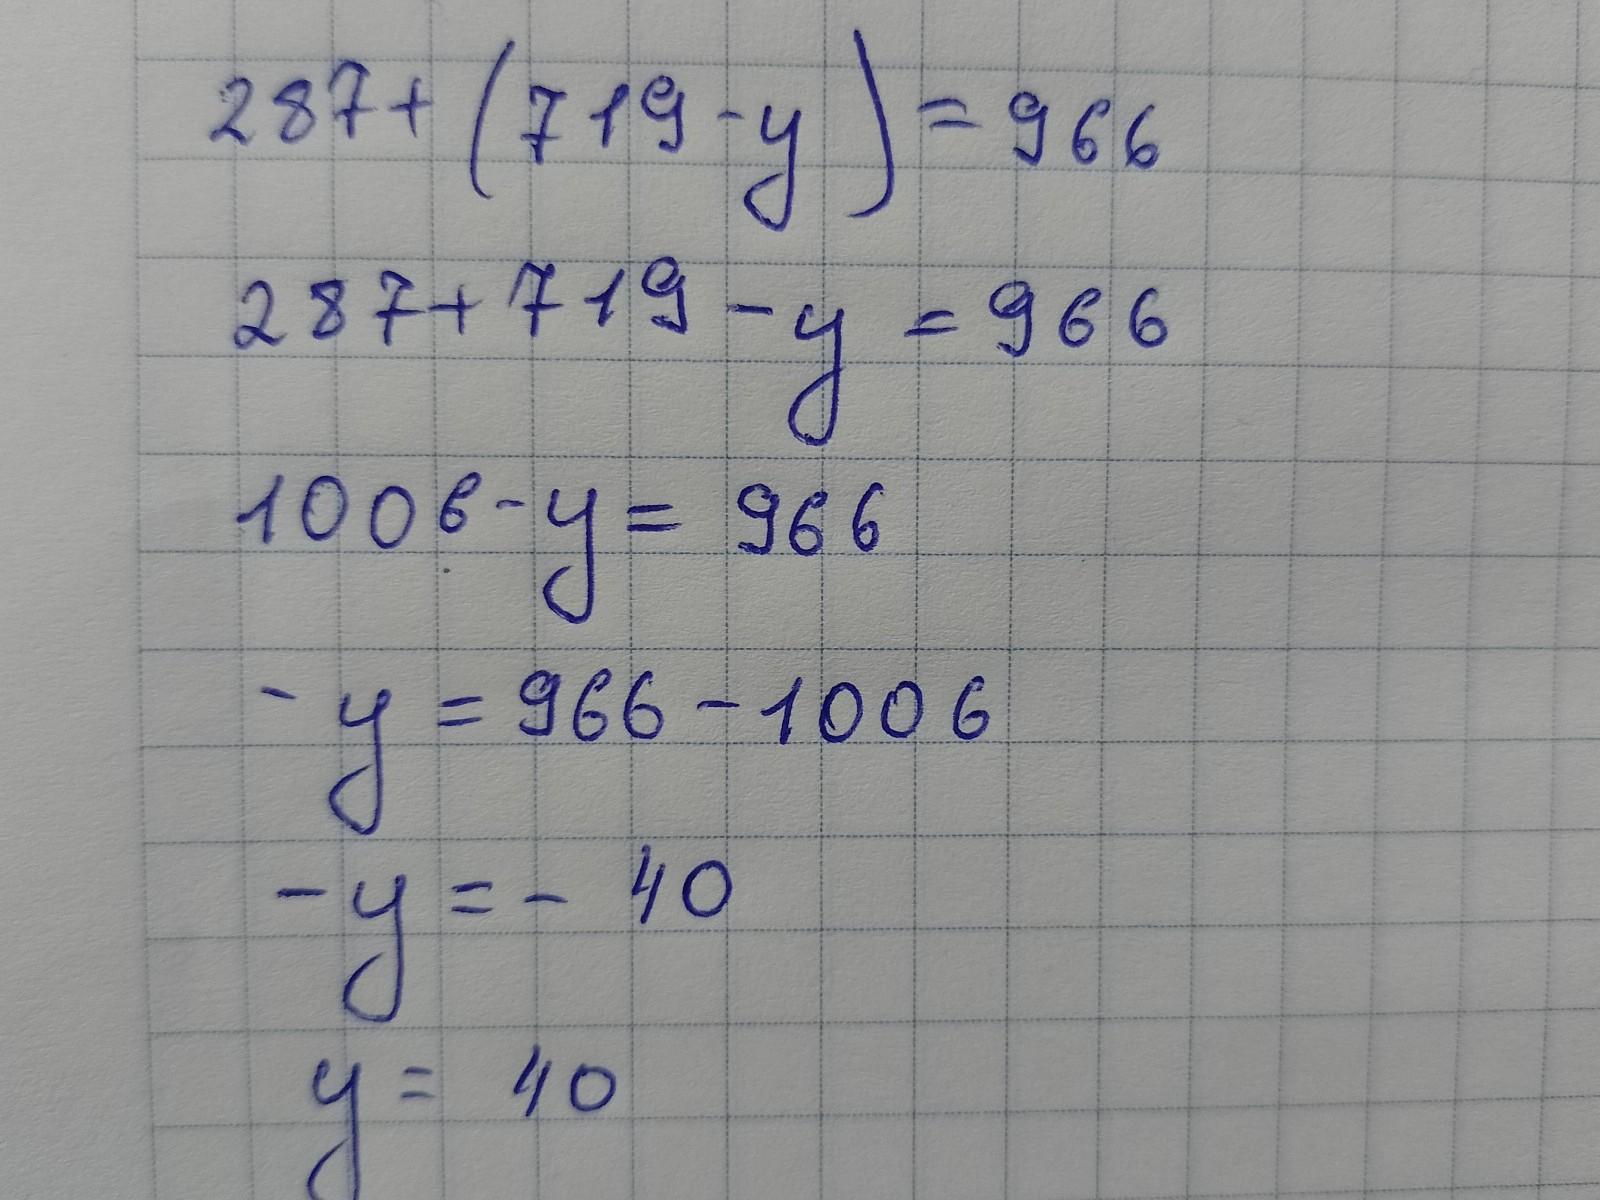 287+(719-y)=966
287+719-y=966
1006-y=966
-y=966-1006
-y=-40
y=40